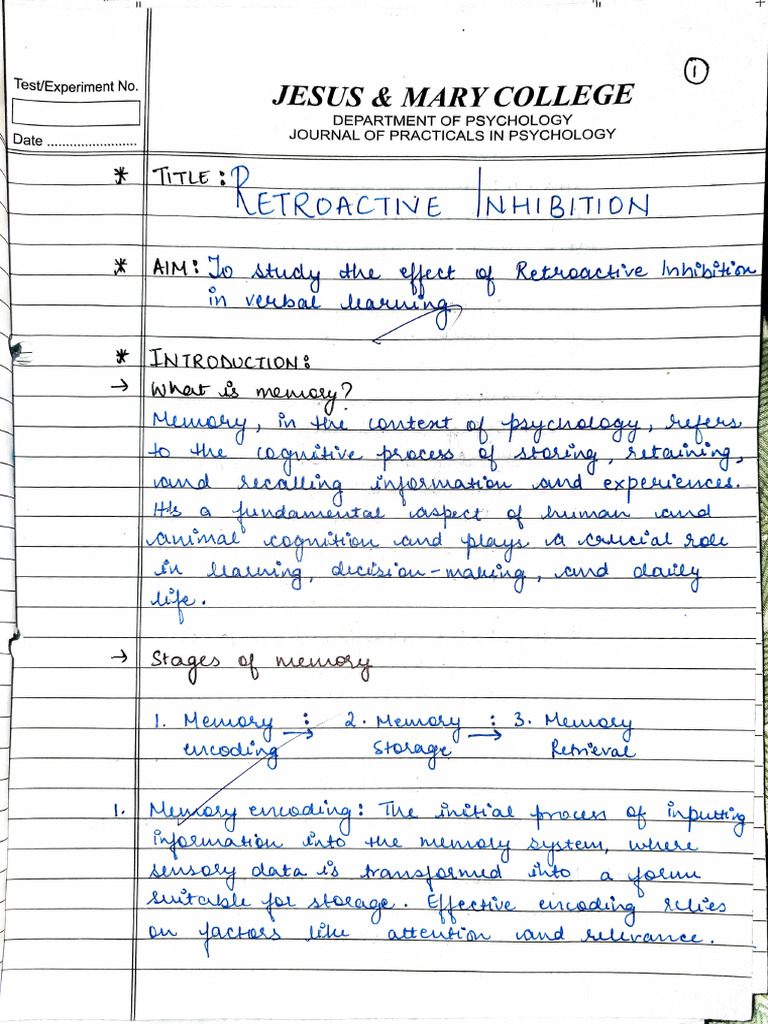 1
Test/Experiment No.
JESUS & MARY COLLEGE
DEPARTMENT OF PSYCHOLOGY
JOURNAL OF PRACTICALS IN PSYCHOLOGY
Date ........................
* TITLE: RETROACTIVE INHIBITION
* AIM: To study the effect of Retroactive Inhibition
in verbal learning
* INTRODUCTION:
→ What is memory?
Memory, in the context of psychology, refers
to the cognitive process of storing, retaining,
and recalling information and experiences.
It's a fundamental aspect of human and
animal cognition and plays a crucial role
in learning, decision-making, and daily
life.
→ Stages of memory
1. Memory : 2. Memory : 3. Memory
encoding → Storage → Retrieval
1. Memory encoding: The initial process of inputting
information into the memory system, where
sensory data is transformed into a form
suitable for storage. Effective encoding relies
on factors like attention and relevance.